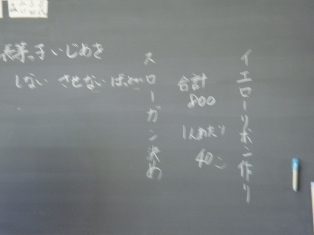 イエローリボン作り
合計
800
1人あたり
40こ
スローガン決め
いじめを
しない させない